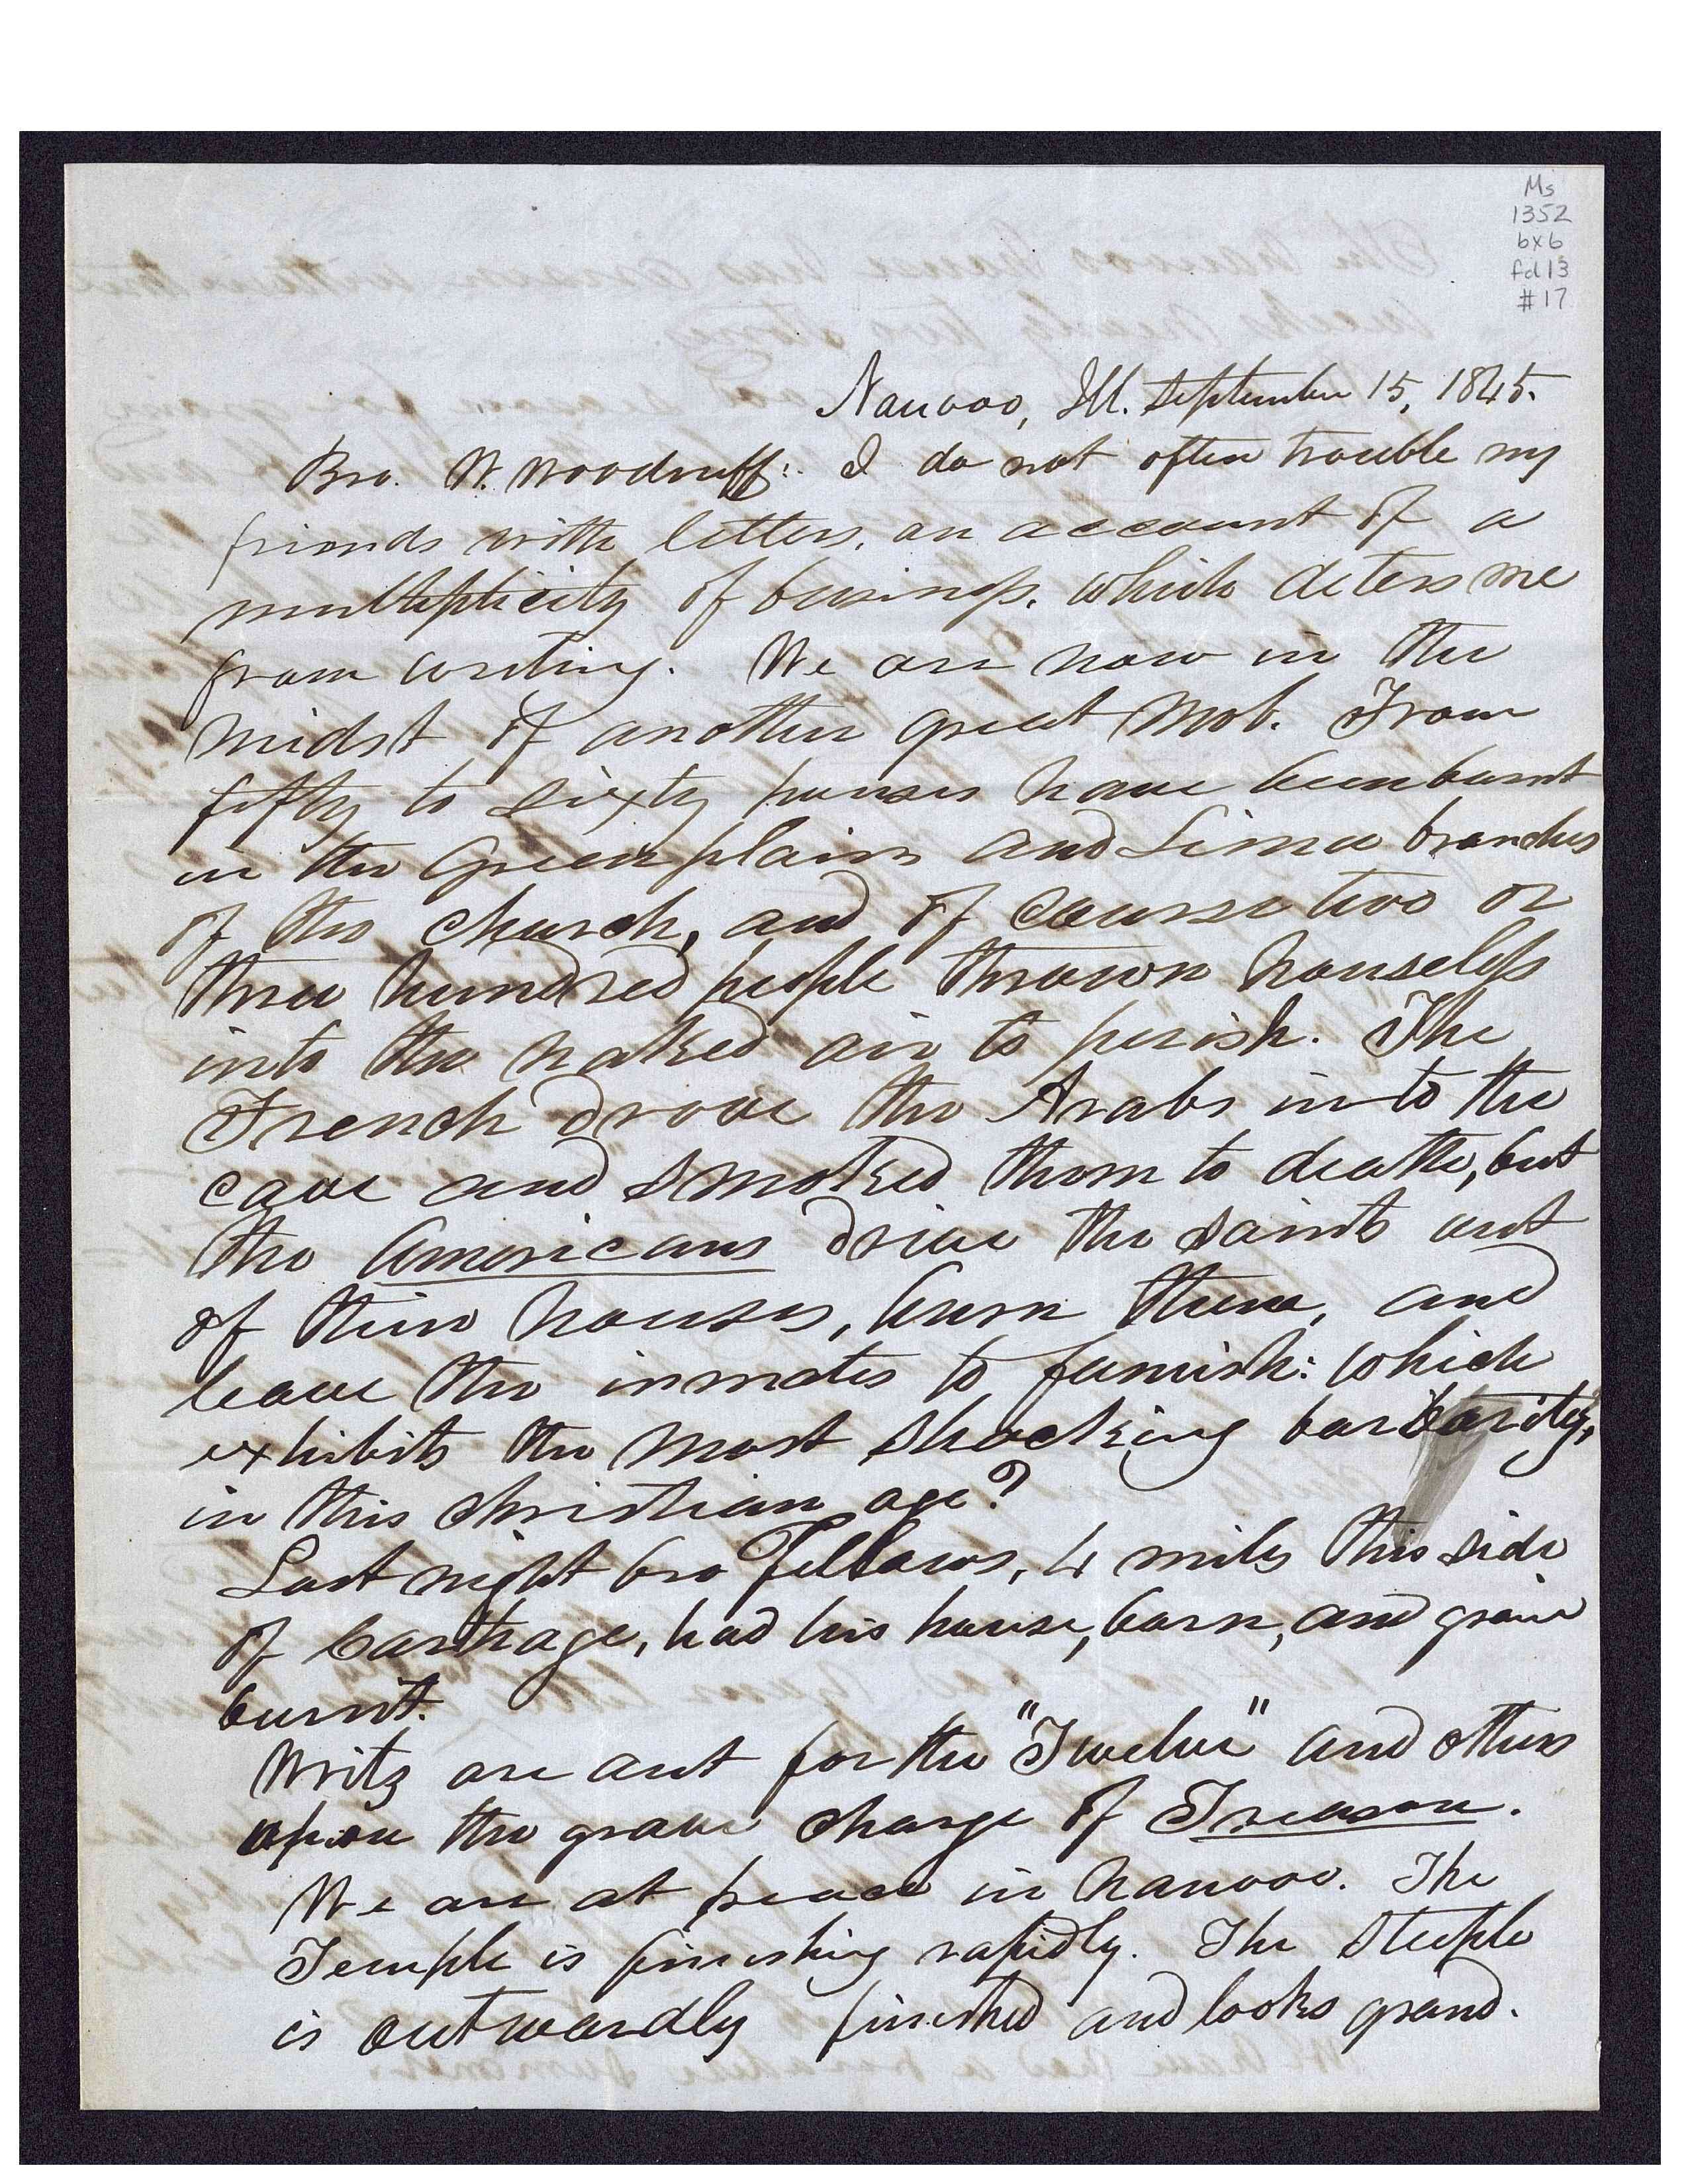 Ms
1352
bx 6
fd 13
#17
Nauvoo, Ill. September 15, 1845.
Bro. W. Woodruff: I do not often trouble my
friends with letters, on account of a
multiplicity of business, which deters me
from writing. We are now in the
midst of another great mob. From
fifty to sixty houses have been burnt
in the Green plains and Lima branches
of the church, and of course two or
three hundred people thrown houseless
into the naked air to perish. The
French drove the Arabs into the
cave and smoked them to death, but
the Americans drive the saints out
of their houses, burn them, and
leave the inmates to famish: which
exhibits the most shocking barbarity,
in this christian age?
Last night bro Fellows, 4 miles this side
of Carthage, had his house, barn, and grain
burnt.
Writs are out for the "Twelve" and others
upon the grave charge of Treason.
We are at peace in Nauvoo. The
Temple is finishing rapidly. The steeple
is outwardly finished and looks grand.